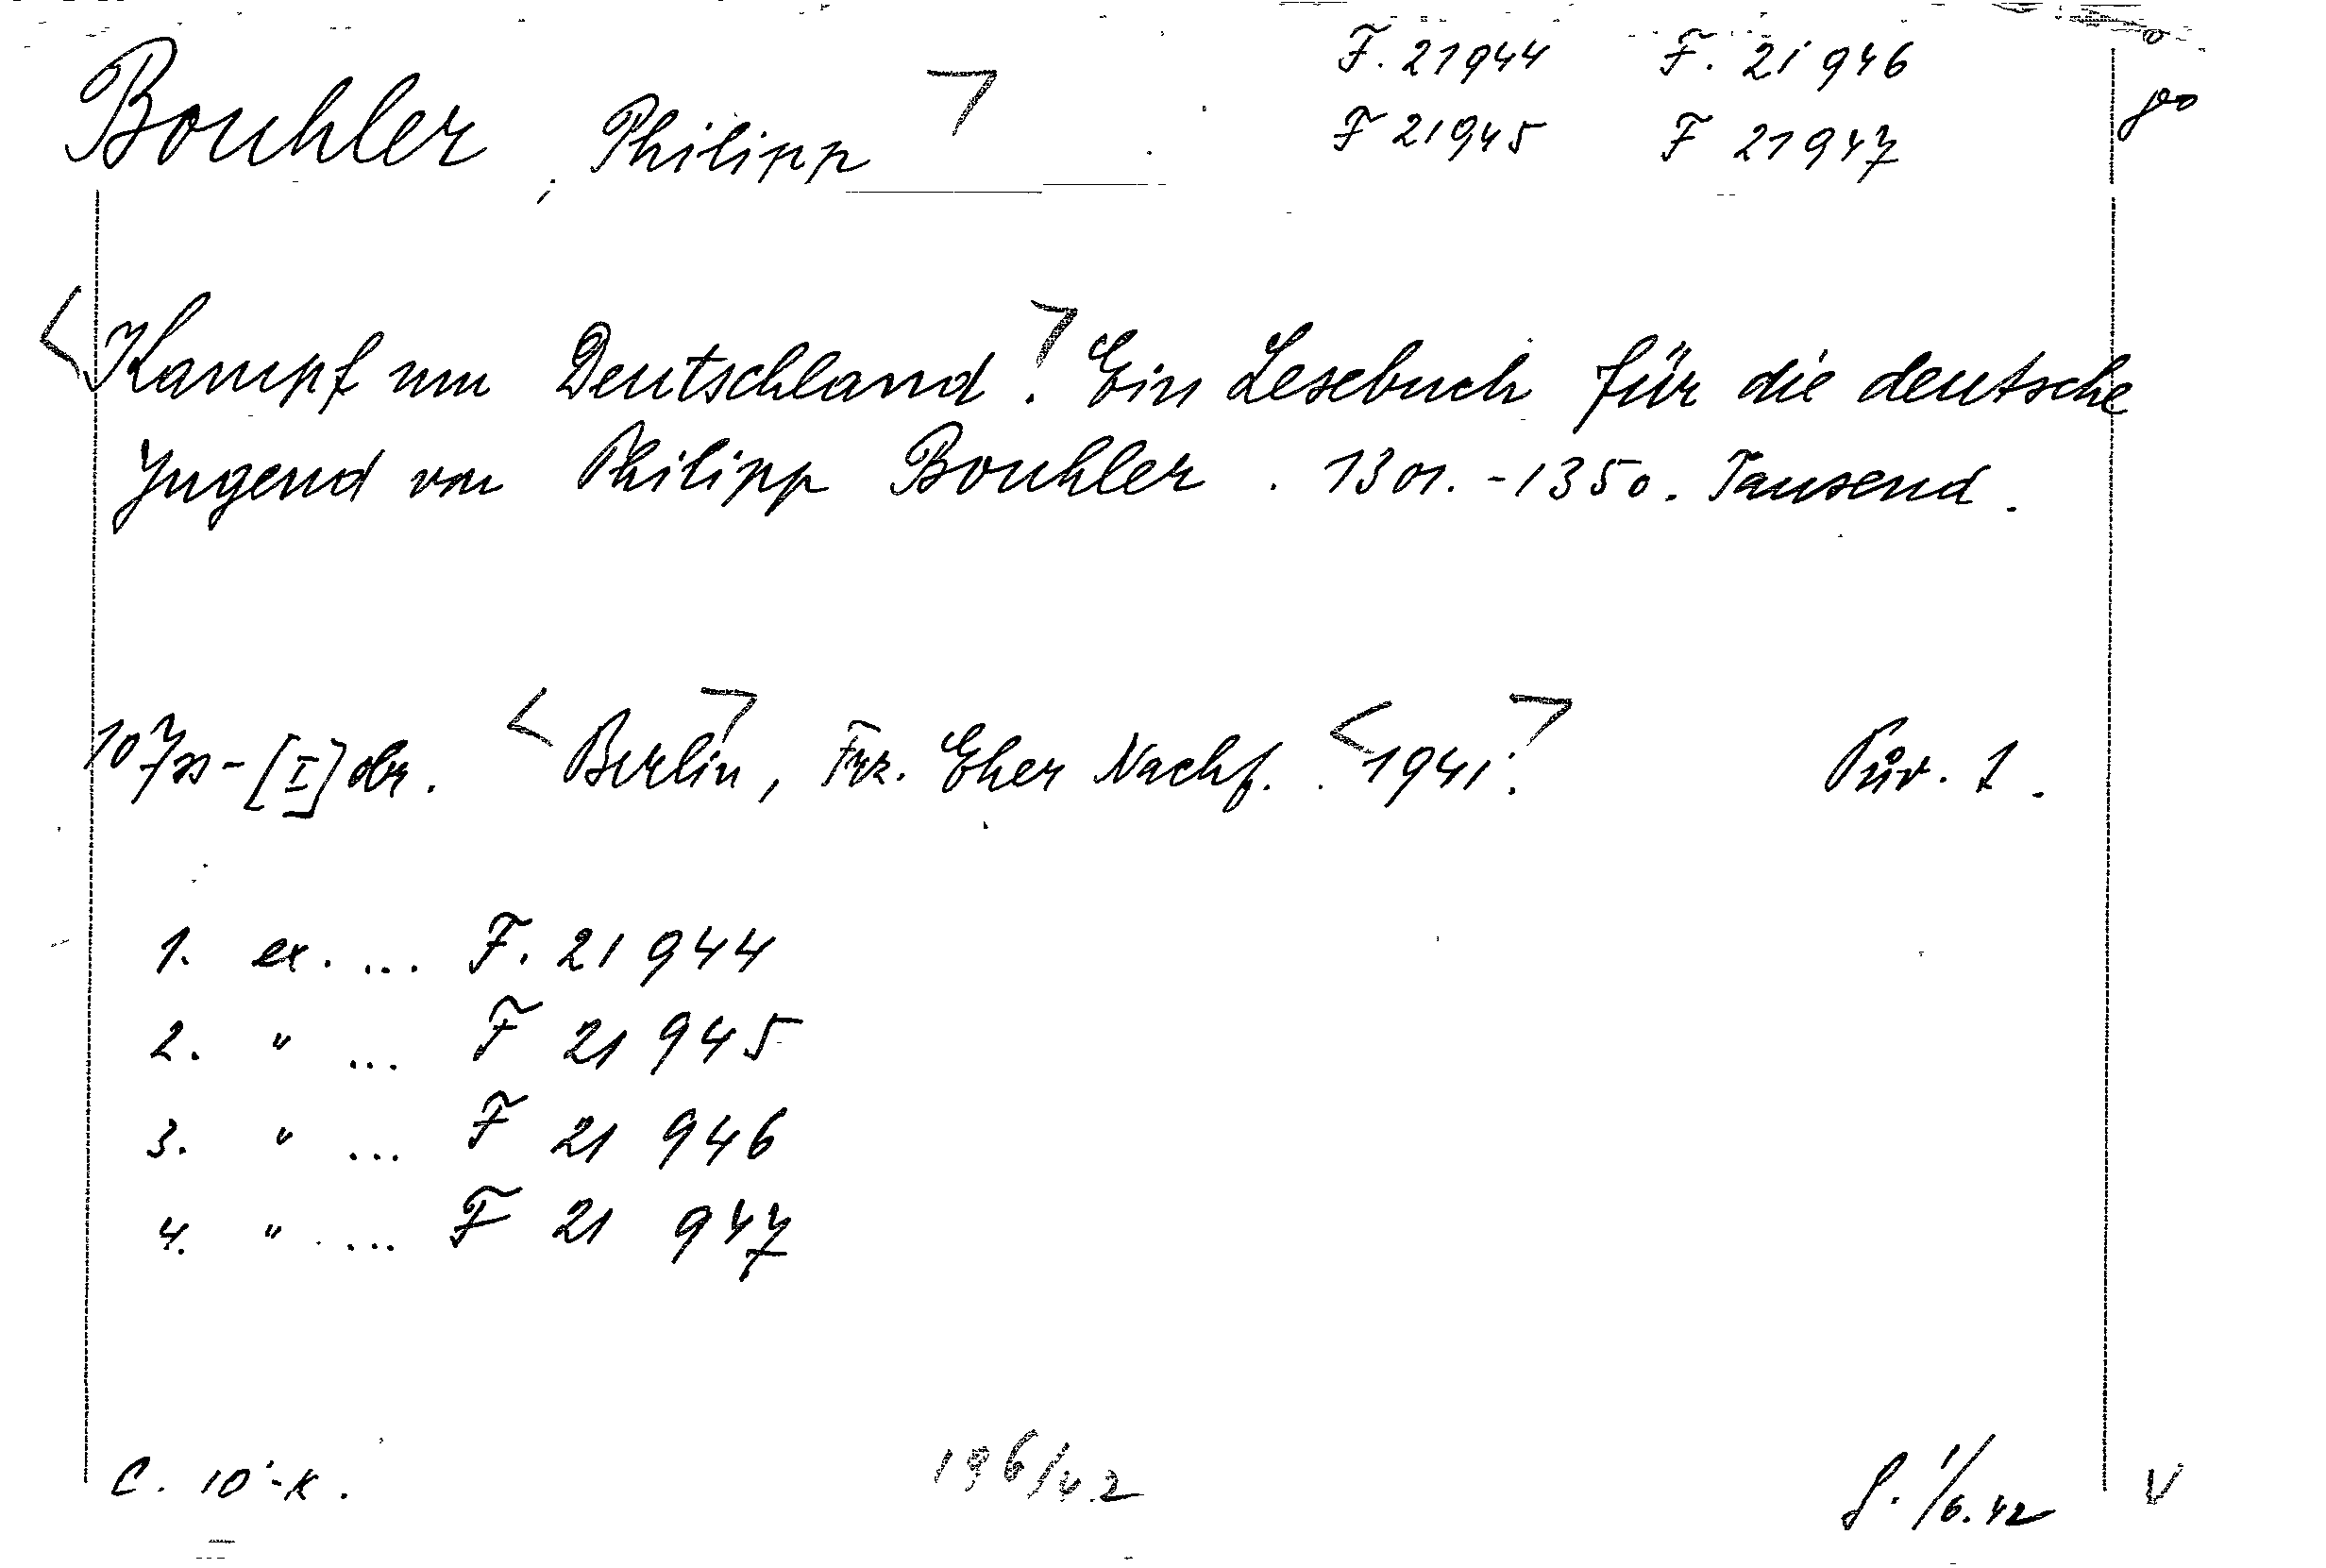 F. 21944 F. 21946
Bouhler, Philipp
F 21945 F 21947
Kampf um Deutschland. Ein Lesebuch für die deutsche
Jugend von Philipp Bouhler. 1301.-1350. Tausend.
107 s - [I] obr. Berlin, Frz. Eher Nachf. 1941. Pův. 1.
1. ex. ... F. 21 944
2. " ... F 21 945
3. " ... F 21 946
4. " ... F 21 947
C. 10'-K. 196/42 1/6.42 V